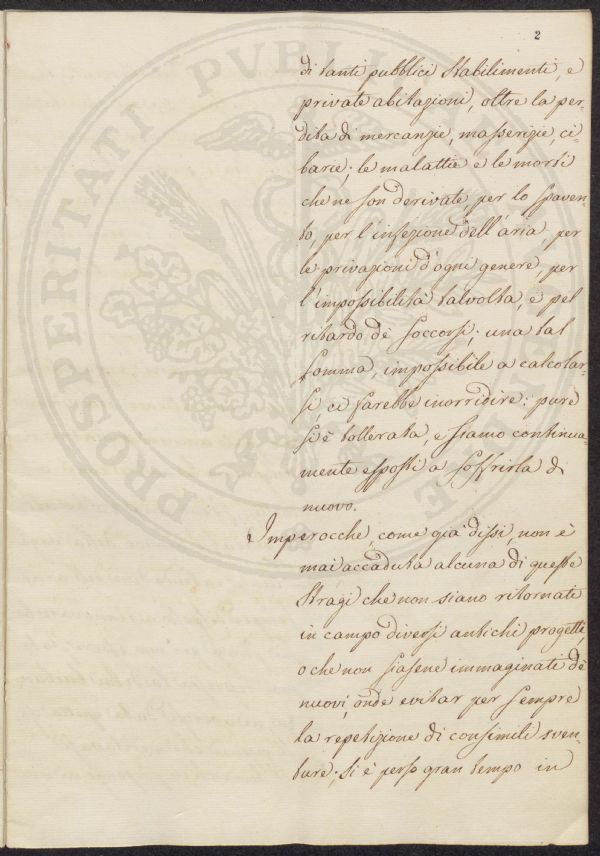 2
di tanti pubblici stabilimenti, e
private abitazioni, oltre la per-
dita di mercanzie, masserizie, ci-
barie; le malattie e le morti
che ne son derivate, per lo spaven-
to, per l'infezione dell'aria, per
le privazioni d'ogni genere, per
l'impossibilità talvolta, e pel
ritardo de' soccorsi; una tal
somma, impossibile a calcolar-
si, ci farebbe inorridire: pure
si è tollerata, e siamo continua-
mente esposti a soffrirla di
nuovo.
Imperocchè, come già dissi, non è
mai accaduta alcuna di queste
stragi che non siano ritornati
in campo diversi antichi progetti,
o che non siasene immaginati de'
nuovi, onde evitar per sempre
la repetizione di consimili sven-
ture; si è perso gran tempo in
PROSPERITATI PVBLICAE